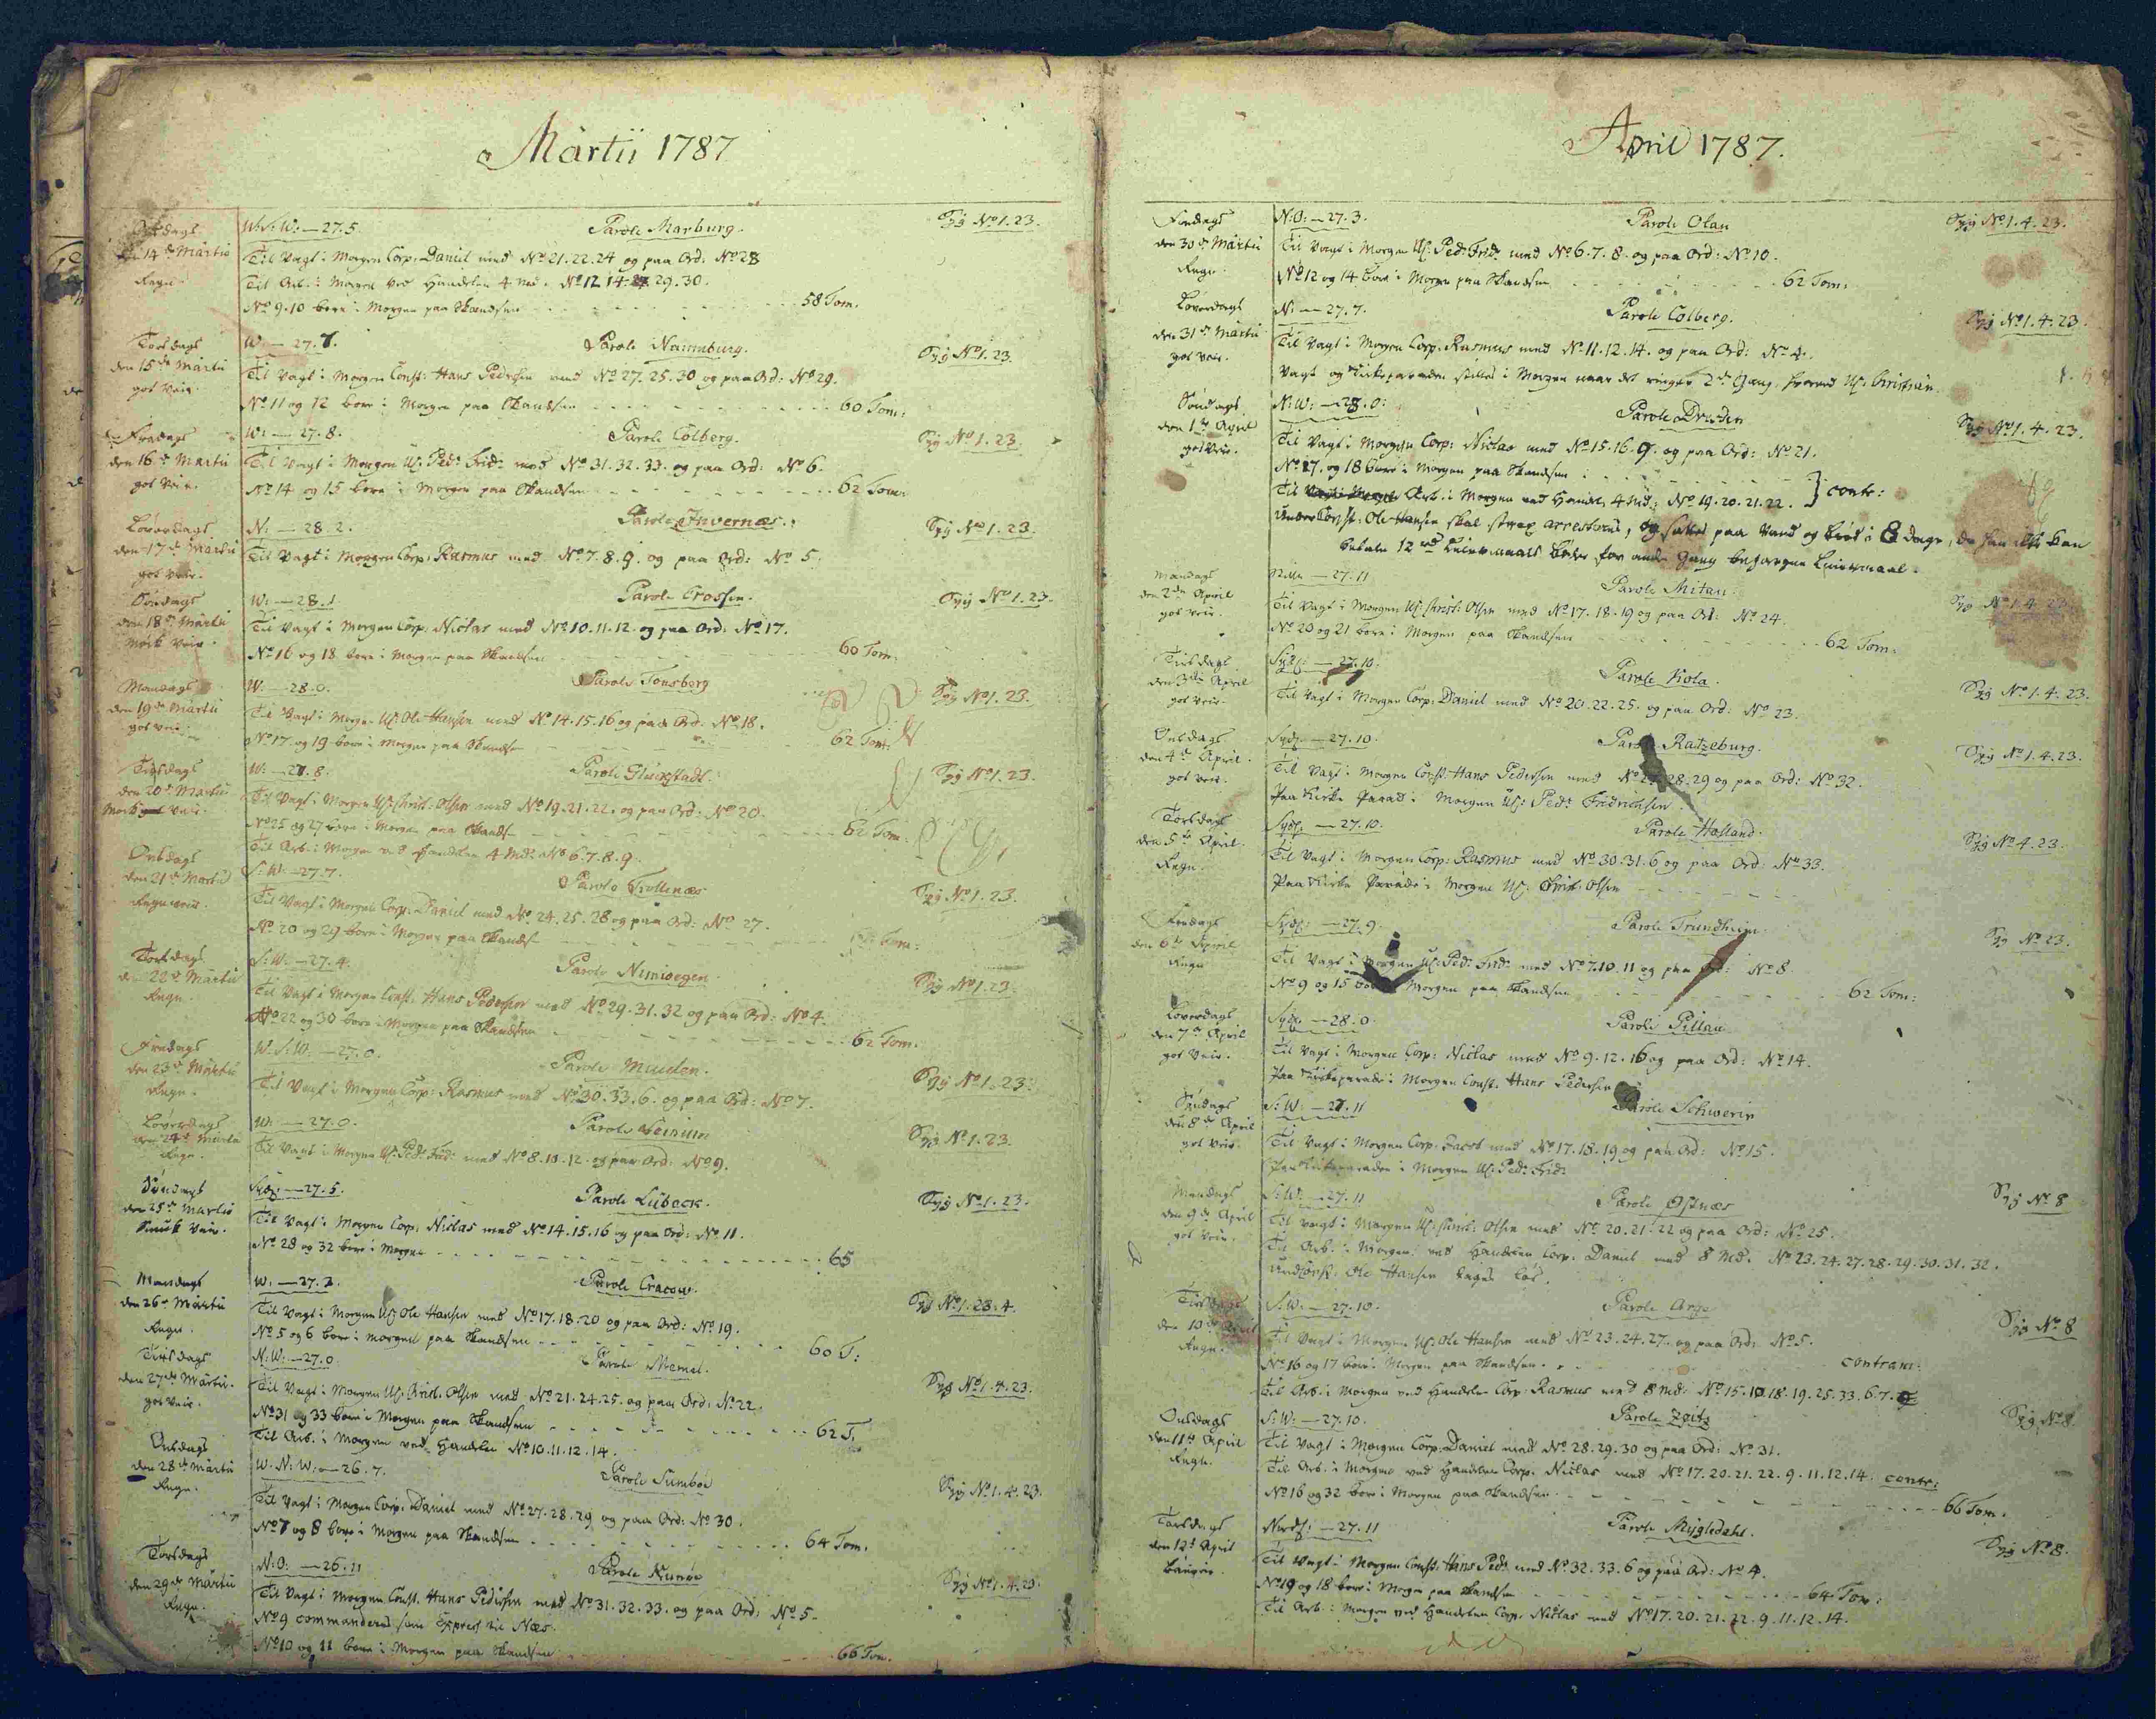 Martii 1787
W.S.W. — 27.5. Parole Marburg. Syg No 1.23.
den 14de Martii Til Vagt i Morgen Corp: Daniel med No 21.22.24 og paa Ord: No 28
Regn. Til Arb. i Morgen ved Handelen 4 Md. No 12 14. 29.30.
No 9.10 bere i Morgen paa Skandsen 58 Tom.
Torsdags W — 27.7. Parole Naumburg. Syg No 1.23.
den 15de Martii Til Vagt i Morgen Const: Hans Pedersen med No 27.25.30 og paa Ord: No 29.
got Veir. No 11 og 12 bere i Morgen paa Skandsen 60 Tom:
Fredags W: — 27.8. Parole Colberg. Syg No 1.23.
den 16de Martii Til Vagt i Morgen Uc: Ped: Frid: med No 31.32.33. og paa Ord: No 6.
got Veir. No 14 og 15 bere i Morgen paa Skandsen 62 Tom:
Løverdags N: — 28.2. Parole Invernæs. Syg No 1.23.
den 17de Martii Til Vagt i Morgen Corp: Rasmus med No 7.8.9. og paa Ord: No 5.
got Veir.
Søndags W: — 28.1 Parole Crossen. Syg No 1.23.
den 18de Martii Til Vagt i Morgen Corp: Niclas med No 10.11.12 og paa Ord: No 17.
Mørk Veir. No 16 og 18 bere i Morgen paa Skandsen 60 Tom:
Mandags W. — 28.0. Parole Tonsberg Syg No 1.23.
den 19de Martii Til Vagt i Morgen Uc: Ole Hansen med No 14.15.16 og paa Ord: No 18.
got Veir. No 17 og 19 bere i Morgen paa Skandsen 62 Tom.
Tirsdags W: — 27.8. Parole Glückstadt. Syg No 1.23.
den 20de Martii Til Vagt i Morgen Uc: Christ: Olsen med No 19.21.22. og paa Ord: No 20.
Mørk Veir. No 25 og 27 bere i Morgen paa Skands 62 Tom.
Til Arb. i Morgen ved Handelen 4 Md: No 6.7.8.9.
Onsdags S:W. — 27.7. Parole Trollenæs Syg No 1.23.
den 21de Martii Til Vagt i Morgen Corp: Daniel med No 24.25.28 og paa Ord: No 27.
Regn veir. No 20 og 29 bere i Morgen paa Skands Tom:
Torsdags S:W. — 27.4. Parole Nimwegen Syg No 1.23.
den 22de Martii Til Vagt i Morgen Const. Hans Pedersen med No 29.31.32 og paa Ord: No 4.
Regn. No 22 og 30 bere i Morgen paa Skandsen 62 Tom.
Fredags W.S.W. — 27.0. Parole Minden. Syg No 1.23.
den 23de Martii Til Vagt i Morgen Corp: Rasmus med No 30.33.6. og paa Ord: No 7.
Regn.
Løverdags W: — 27.0. Parole Syg No 1.23.
den 24de Martii Til Vagt i Morgen Uc: Ped: Frid: med No 8.10.12. og paa Ord: No 9.
Regn.
Søndags Syd: — 27.5. Parole Lübeck. Syg No 1.23.
den 25de Martii Til Vagt i Morgen Corp: Niclas med No 14.15.16 og paa Ord: No 11.
Smuk Veir. No 28 og 32 bere i Morgen 65
Mandags W. — 27.2. Parole Cracow. Syg No 1.23.4.
den 26de Martii Til Vagt i Morgen Uc: Ole Hansen med No 17.18.20 og paa Ord: No 19.
Regn. No 5 og 6 bere i Morgen paa Skandsen 60 T:
Tirsdags N:W: — 27.0 Parole Memel. Syg No 1.4.23.
den 27de Martii. Til Vagt i Morgen Uc: Christ. Olsen med No 21.24.25. og paa Ord: No 22.
got Veir. No 31 og 33 bere i Morgen paa Skandsen 62 T.
Til Arb. i Morgen ved Handelen No 10.11.12.14.
Onsdags W.N:W: — 26.7. Parole Sumbøe Syg No 1.4.23.
den 28de Martii Til Vagt i Morgen Corp: Daniel med No 27.28.29 og paa Ord: No 30.
Regn. No 7 og 8 bere i Morgen paa Skandsen 64 Tom.
Torsdags N:O: — 26.11 Parole Nunøe Syg No 1.4.23.
den 29de Martii Til Vagt i Morgen Const. Hans Pedersen med No 31.32.33. og paa Ord: No 5.
Regn. No 9 commanderes som Express til Næs.
No 10 og 11 bere i Morgen paa Skandsen 66 Tom.
April 1787.
Fredags N:O: — 27.3. Parole Olau Syg No 1.4.23.
den 30de Martii Til Vagt i Morgen Uc: Ped: Frid: med No 6.7.8. og paa Ord: No 10.
Regn. No 12 og 14 bere i Morgen paa Skandsen 62 Tom:
Løverdags N: — 27.7. Parole Colberg. Syg No 1.4.23.
den 31de Martii Til Vagt i Morgen Corp: Rasmus med No 11.12.14. og paa Ord: No 4.
got Veir. Vagt og Kirkeparaden stilles i Morgen naar det ringer 2de Gang, hvorved Uc: Christian.
Søndags N:W: — 28.0: Parole Dresden Syg No 1.4.23.
den 1ste April Til Vagt i Morgen Corp: Niclas med No 15.16.9. og paa Ord: No 21.
got Veir. No 17. og 18 bere i Morgen paa Skandsen
Til Arb. i Morgen ved Handel. 4 Md: No 19.20.21.22. } contr:
Under Const: Ole Hansen skal strax arresteres, og sættes paa Vand og brød i 8 dage, da han ikke kan
betale 12 rd Leiermaals bøder for anden Gang begangen Leiermaal.
Mandags — 27.11 Parole Mitau. Syg No 1.4.23.
den 2den April Til Vagt i Morgen Uc: Christ: Olsen med No 17.18.19 og paa Ord: No 24.
got Veir. No 20 og 21 bere i Morgen paa Skandsen 62 Tom:
Tirsdags Syd: — 27.10. Parole Kola. Syg No 1.4.23.
den 3die April Til Vagt i Morgen Corp: Daniel med No 20.22.25. og paa Ord: No 23.
got Veir.
Onsdags Syd: — 27.10. Parole Ratzeburg. Syg No 1.4.23.
den 4de April. Til Vagt i Morgen Const: Hans Pedersen med No 28.29 og paa Ord: No 32.
got Veir. Paa Kirke Parade i Morgen Uc: Ped: Fridrichsen.
Torsdags Syd: — 27.10. Parole Holland. Syg No 4.23.
den 5te April. Til Vagt i Morgen Corp: Rasmus med No 30.31.6 og paa Ord: No 33.
Regn. Paa Kirke Parade i Morgen Uc: Christ: Olsen
Fredags Syd: — 27.9. Parole Trundhiem. Syg No 23.
den 6te April Til Vagt i Morgen Uc: Ped: Frid: med No 7.10.11 og paa Ord: No 8.
Regn No 9 og 15 Morgen paa Skandsen 62 Tom:
Løverdags Syd: — 28.0. Parole Pillau
den 7de April Til Vagt i Morgen Corp: Niclas med No 9.12.16 og paa Ord: No 14.
got Veir. Paa Kirkeparade i Morgen Const. Hans Pedersen
Søndags S:W: — 27.11 Parole Schwerin
den 8de April Til Vagt i Morgen Corp: Jacob med No 17.18.19 og paa Ord: No 15.
got Veir. Paa Kirkeparaden i Morgen Uc: Ped: Frid:
Mandags S:W: — 27.11 Parole Østnæs Syg No 8
den 9de April Til Vagt i Morgen Uc: Christ: Olsen med No 20.21.22 og paa Ord: No 25.
got Veir. Til Arb. i Morgen ved Handelen Corp. Daniel med 8 Md. No 23.24.27.28.29.30.31.32.
Und Const. Ole Hansen tages løs.
Tirsdags S:W: — 27.10. Parole Arge Syg No 8
den 10de April Til Vagt i Morgen Uc: Ole Hansen med No 23.24.27. og paa Ord: No 5.
Regn. No 16 og 17 bere i Morgen paa Skandsen. contram:
Til Arb. i Morgen ved Handelen Corp. Rasmus med 8 Md: No 15.10.18.19.25.33.6.7.
Onsdags S:W: — 27.10. Parole Zeitz Syg No 8
den 11te April Til Vagt i Morgen Corp: Daniel med No 28.29.30 og paa Ord: No 31.
Regn. Til Arb. i Morgen ved Handelen Corp. Niclas med No 17.20.21.22.9.11.12.14. contr:
No 16 og 32 bere i Morgen paa Skandsen. 66 Tom.
Torsdags Nord: — 27.11 Parole Mygledahl. Syg No 8.
den 12te April Til Vagt i Morgen Const. Hans Ped: med No 32.33.6 og paa Ord: No 4.
No 19 og 18 bere i Morgen paa Skandsen 64 Tom:
Til Arb. i Morgen ved Handelen Corp. Niclas med No 17.20.21.22.9.11.12.14.